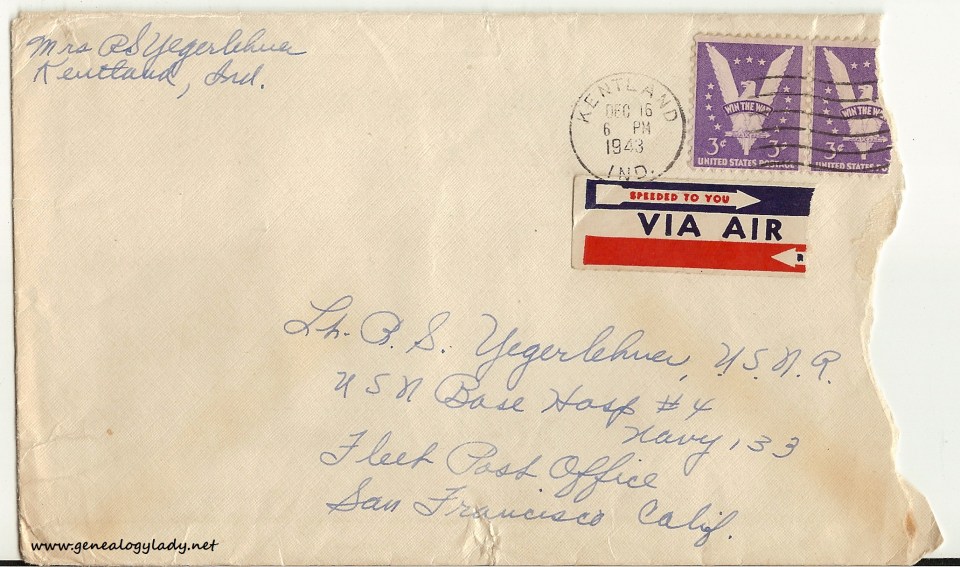 Mrs R S Yegerlehner
Kentland, Ind.
KENTLAND
DEC 16
6 PM
1943
IND.
WIN THE WAR
3¢ 3¢
UNITED STATES POSTAGE
WIN THE W
3¢
UNITED STATES PO
SPEEDED TO YOU
VIA AIR
R
Lt. R. S. Yegerlehner, U.S.N.R.
U S N Base Hosp #4
Navy 133
Fleet Post Office
San Francisco Calif.
www.genealogylady.net